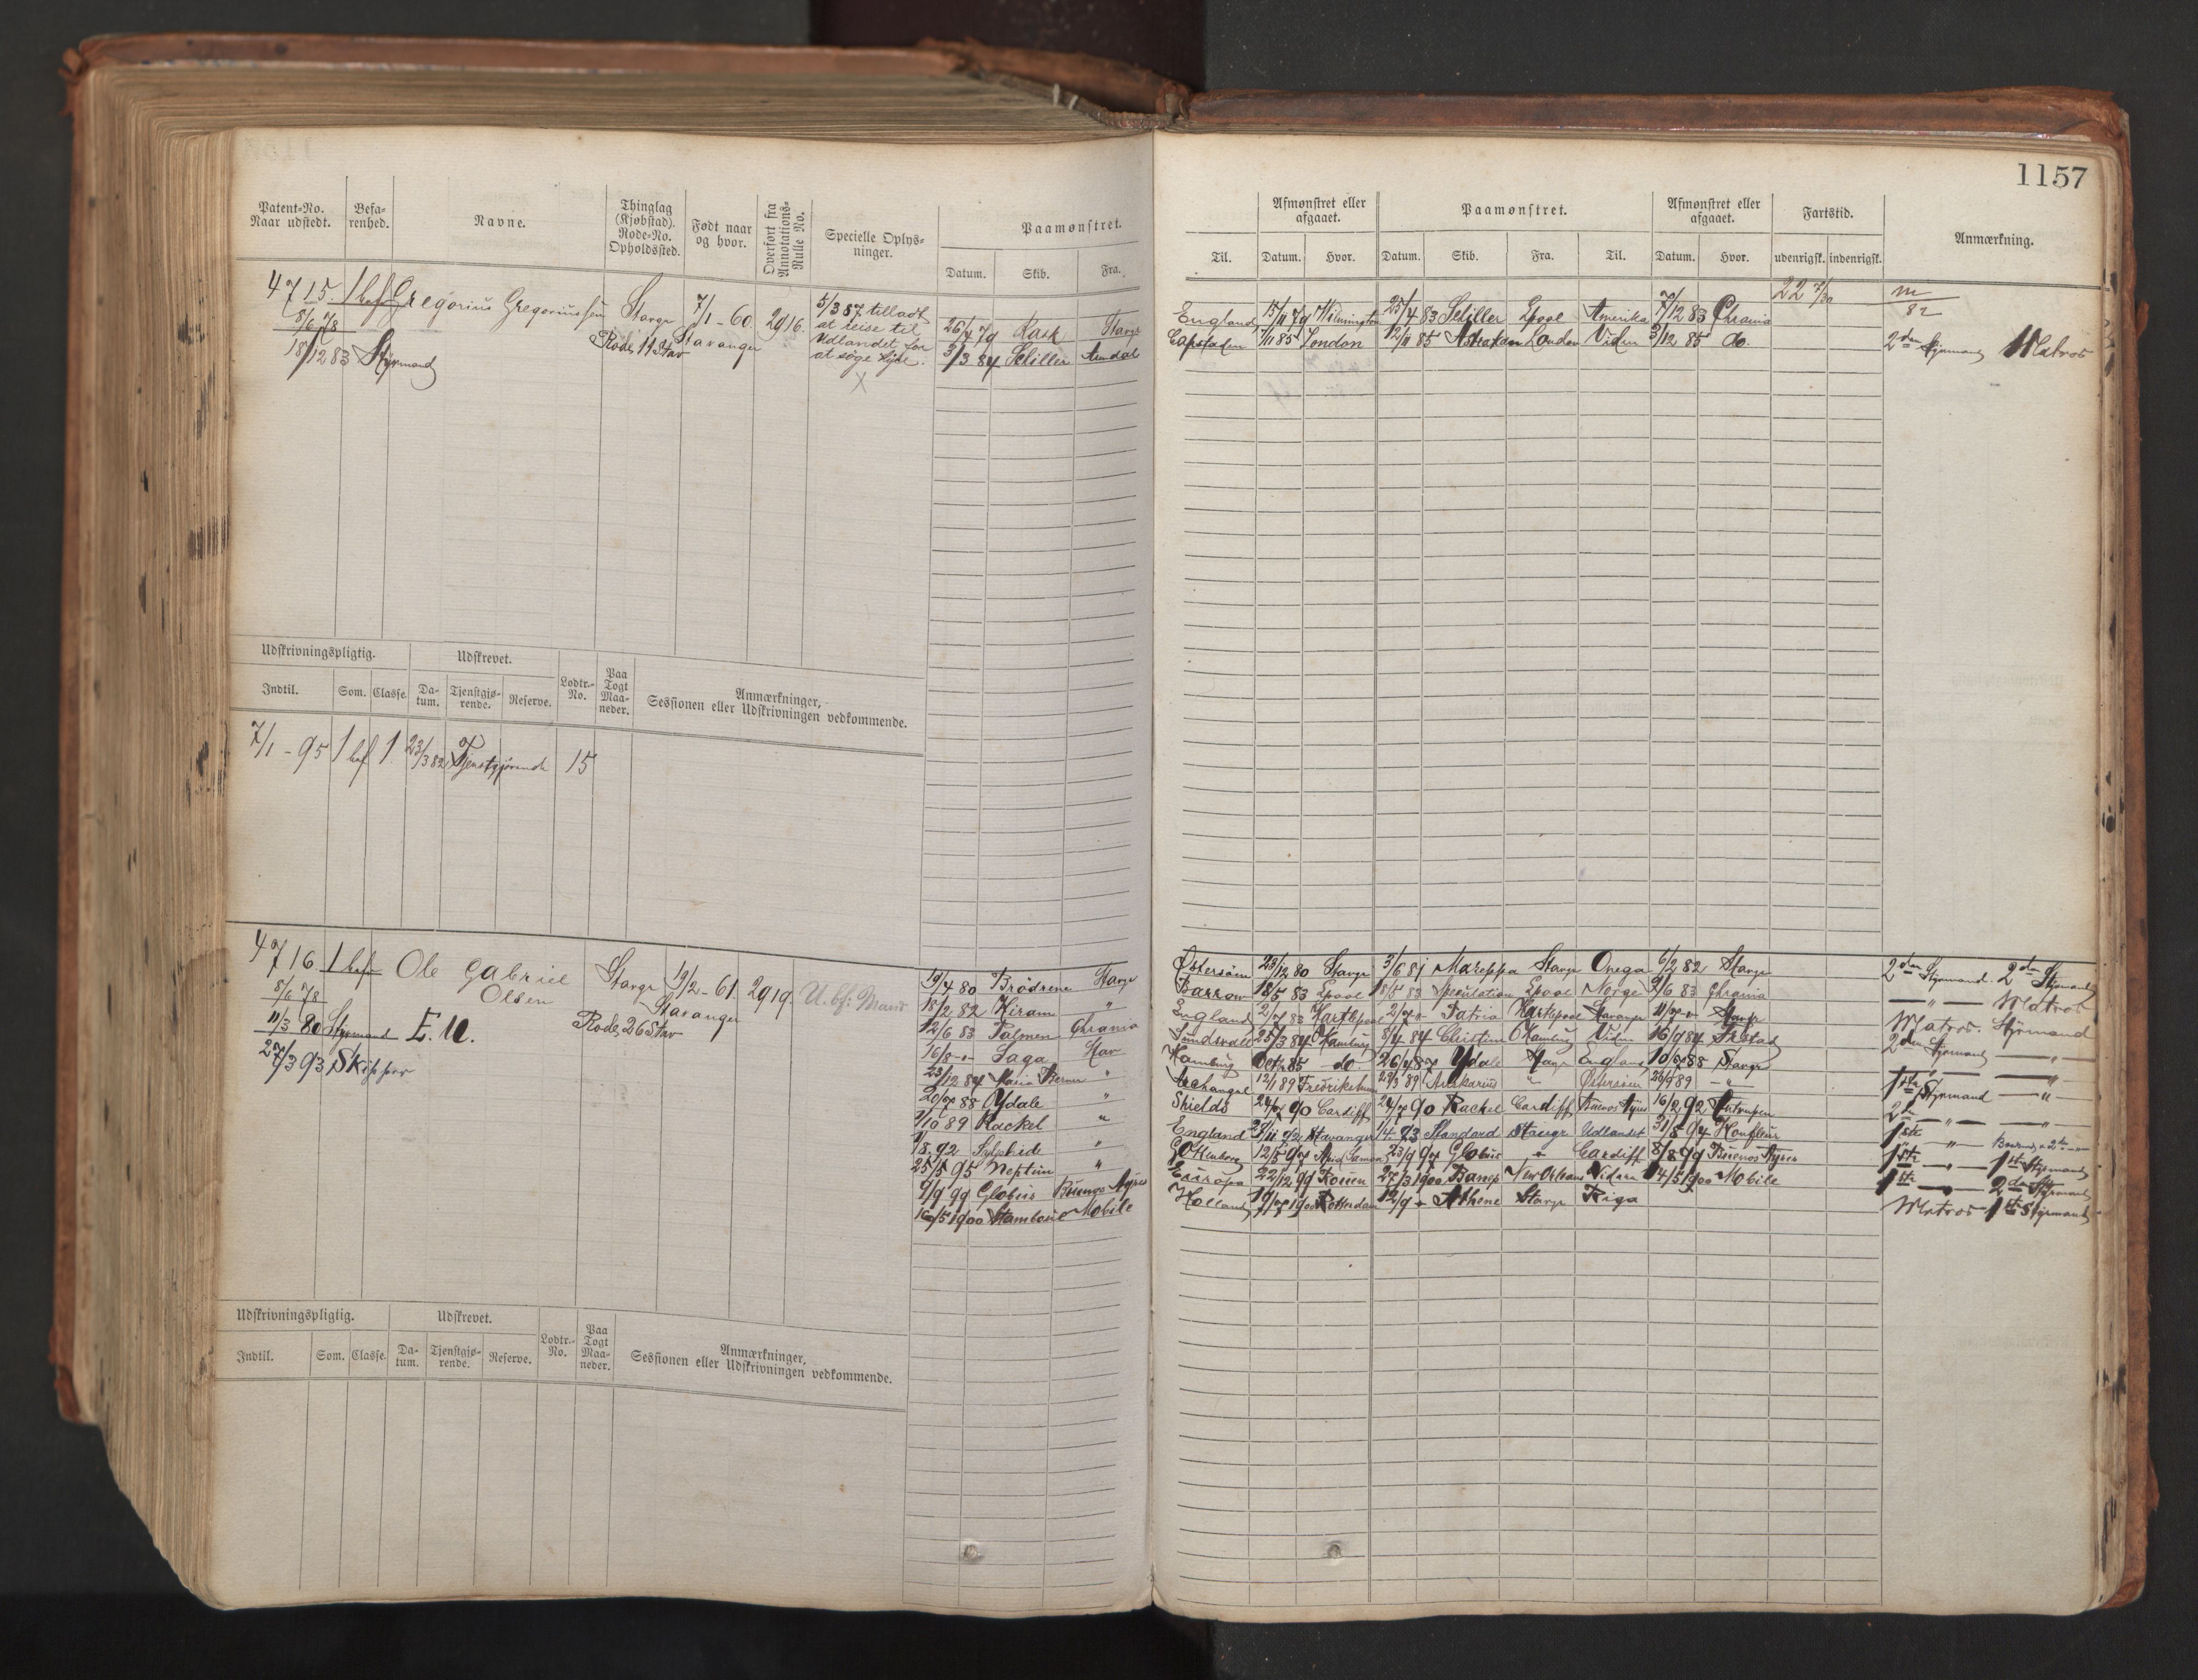 1157
Patent-No. Naar udstedt. Befa-renhed. Navne. Thinglag (Kjøbstad). Rode-No. Opholdssted. Født naar og hvor. Overført fra Annotations-Rulle No. Specielle Oplys-ninger. Paamønstret. Datum. Skib. Fra.
Til. Afmønstret eller afgaaet. Datum. Hvor. Paamønstret. Datum. Skib. Fra. Til. Afmønstret eller afgaaet. Datum. Hvor. Fartstid. udenrigsk. indenrigsk. Anmærkning.
4715. 1 bef Gregorius Gregoriussen Stavgr 7/1-60. 2916. 5/3 87 tilladt
8/6 78 Rode 11 Stav Stavanger at reise til
18/12 83 Styrmand Udlandet for
at søge Hyre.
X
26/4 79 Rask Stavgr England 15/11 79 Wilmington 25/4 83 Schiller Lpool Amerika 7/12 83 Chrania
3/3 84 Schiller Arendal Capstaden 7/11 85 London 12/11 85 Astrakan London Viden 3/12 85 do. 2den Styrmand Matros
22 7/30
m/82
Udskrivningspligtig. Udskrevet. Lodtr.-No. Paa Togt Maa-neder. Anmærkninger, Sessionen eller Udskrivningen vedkommende.
Indtil. Som. Classe. Da-tum. Tjenstgjø-rende. Reserve.
7/1-95 1 bef 1. 23/3 82 Tjenstgjørende 15
4716. 1 bef Ole Gabriel Stavgr 19/2-61. 2919. U. bf: Mand
8/6 78 Olsen Stavanger
11/3 80 Styrmand E. U. Rode 26 Stav
27/3 93 Skipper
19/4 80 Brödrene Stavgr Østersöen 23/12 80 Stavgr 3/6 81 Mareppa Stavgr Onega 6/2 82 Stavgr 2den Styrmand 2den Styrmand
18/2 82 Hiram " Barrow 18/5 83 Lpool 18/5 83 Speculation Lpool Norge 9/6 83 Chrania —"— Matros
12/6 83 Palmen Chrania England 2/7 83 Hartlepool 2/7 -"- Patria Hartlepool Stavanger 11/7 -"- Stavgr Matros. Styrmand
16/8 -"- Saga Stav Sundsvall 25/3 84 Hamburg 8/4 84 Christine Hamburg Viden 16/9 84 Frstad 2den Styrmand —"—
23/12 84 " Hamburg Octbr 85 do. 26/4 87 Ydale Stavgr England 10/7 88 Stavgr —"— —"—
20/7 88 Ydale " Archangel 12/1 89 29/3 89 " Østersöen 26/9 89 —"— 1ste Styrmand —"—
1/10 89 Rackel " Shields 24/7 90 Cardiff 24/7 90 Rackel Cardiff Buenos Ayres 16/2 92 Antwerpen 2den —"— —"—
1/8. 92 Sylphide " England 28/11 92 Stavanger 1/4. 93 Standard Stavgr Udlandet 31/8 94 Honfleur 1ste —"—
25/5 95 Neptun " Göthenborg 12/5 97 23/9 97 Globus " Cardiff 8/8 99 Buenos Ayres 1ste —"— 1ste Styrmand
9/9 99 Globus Buenos Ayres Europa 22/12 99 Rouen 27/3 1900 New Orleans Viden 14/5 1900 Mobile 1ste —"— 2den Styrmand
16/5 1900 Stamboul Mobile Holland 19/7 1900 Rotterdam 12/9 " Athene Stavgr Riga Matros 1ste Styrmand
Udskrivningspligtig. Udskrevet. Lodtr.-No. Paa Togt Maa-neder. Anmærkninger, Sessionen eller Udskrivningen vedkommende.
Indtil. Som. Classe. Da-tum. Tjenstgjø-rende. Reserve.